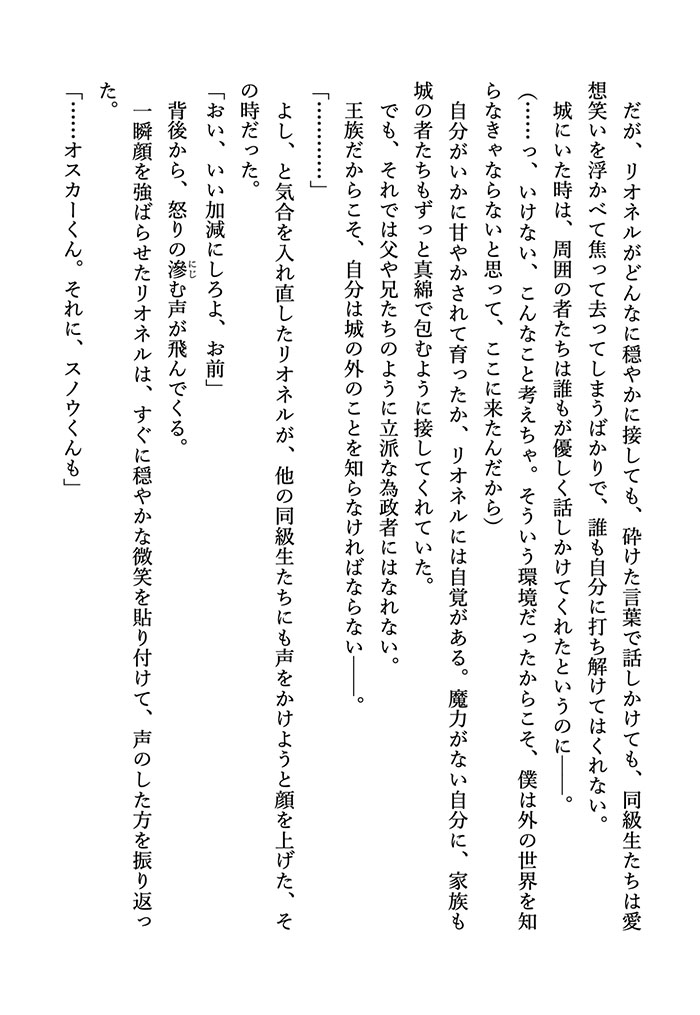 だが、リオネルがどんなに穏やかに接しても、砕けた言葉で話しかけても、同級生たちは愛
想笑いを浮かべて焦って去ってしまうばかりで、誰も自分に打ち解けてはくれない。
城にいた時は、周囲の者たちは誰もが優しく話しかけてくれたというのに――。
(……っ、いけない、こんなこと考えちゃ。そういう環境だったからこそ、僕は外の世界を知
らなきゃならないと思って、ここに来たんだから)
自分がいかに甘やかされて育ったか、リオネルには自覚がある。魔力がない自分に、家族も
城の者たちもずっと真綿で包むように接してくれていた。
でも、それでは父や兄たちのように立派な為政者にはなれない。
王族だからこそ、自分は城の外のことを知らなければならない――。
「…………」
よし、と気合を入れ直したリオネルが、他の同級生たちにも声をかけようと顔を上げた、そ
の時だった。
「おい、いい加減にしろよ、お前」
背後から、怒りの滲にじむ声が飛んでくる。
一瞬顔を強ばらせたリオネルは、すぐに穏やかな微笑を貼り付けて、声のした方を振り返っ
た。
「……オスカーくん。それに、スノウくんも」